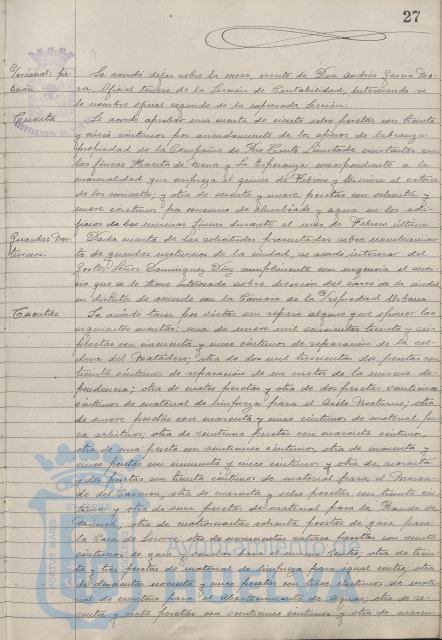 27
Personal: petición
Se acordó dejar sobre la mesa, escrito de Don Andrés García Mora, Oficial tercero de la Sección de Contabilidad, interesando se
le nombre oficial segundo de la expresada Sección.
Cuenta
Se acordó aprobar una cuenta de ciento ocho pesetas con treinta
y cinco céntimos por arrendamiento de los aperos de labranza
propiedad de la Compañía de Rio Tinto Limitada existentes en
las fincas Huerta de Mena y la Esperanza correspondiente a la
mensualidad que empieza el quince de Febrero y termina el catorce
de los corrientes; y otra de sesenta y nueve pesetas con setenta y
nueve céntimos por consumo de alumbrado y agua en los edificios de las mismas fincas durante el mes de Febrero último.
Guardas Nocturnos.
Dada cuenta de las solicitudes presentadas sobre nombramiento
de guardas nocturnos de la ciudad, se acordó interesar del
Gestor Señor Dominguez Diaz cumplimente con urgencia el servicio que se le tiene interesado sobre división del casco de la ciudad
en distritos de acuerdo con la Cámara de la Propiedad Urbana.
Cuentas
Se acordó tener por vistas sin reparo alguno que oponer las
siguientes cuentas: una de nueve mil seiscientas treinta y seis
pesetas con cincuenta y cinco céntimos de reparación de la caldera del Matadero; otra de dos mil trescientas dos pesetas con
treinta céntimos de reparación de un motor de la misma dependencia; otra de cuatro pesetas y otra de dos pesetas veinticinco
céntimos de material de limpieza para el Asilo Nocturno; otra
de nueve pesetas con cuarenta y cinco céntimos de material para arbitrios, otra de veintiuna pesetas con cuarenta céntimos,
otra de una peseta con veinticinco céntimos, otra de cincuenta y
cinco pesetas con cincuenta y cinco céntimos y otra de cuarenta
y dos pesetas con treinta céntimos de material para el Mercado del Carmen, otra de cuarenta y ocho pesetas con treinta céntimos y otra de once pesetas de material para la Banda de
Música; otra de cuatrocientas setenta pesetas de gasa para
la Casa de Socorro, otra de novecientas catorce pesetas con veinte
céntimos de gasa y vendas para el mismo Centro; otra de treinta y tres pesetas de material de limpieza para igual centro, otra
de doscientas noventa y cinco pesetas con trece céntimos de material de escritorio para el Abastecimiento de Aguas, otra de setenta y siete pesetas con veinticinco céntimos y otra de cuaren-